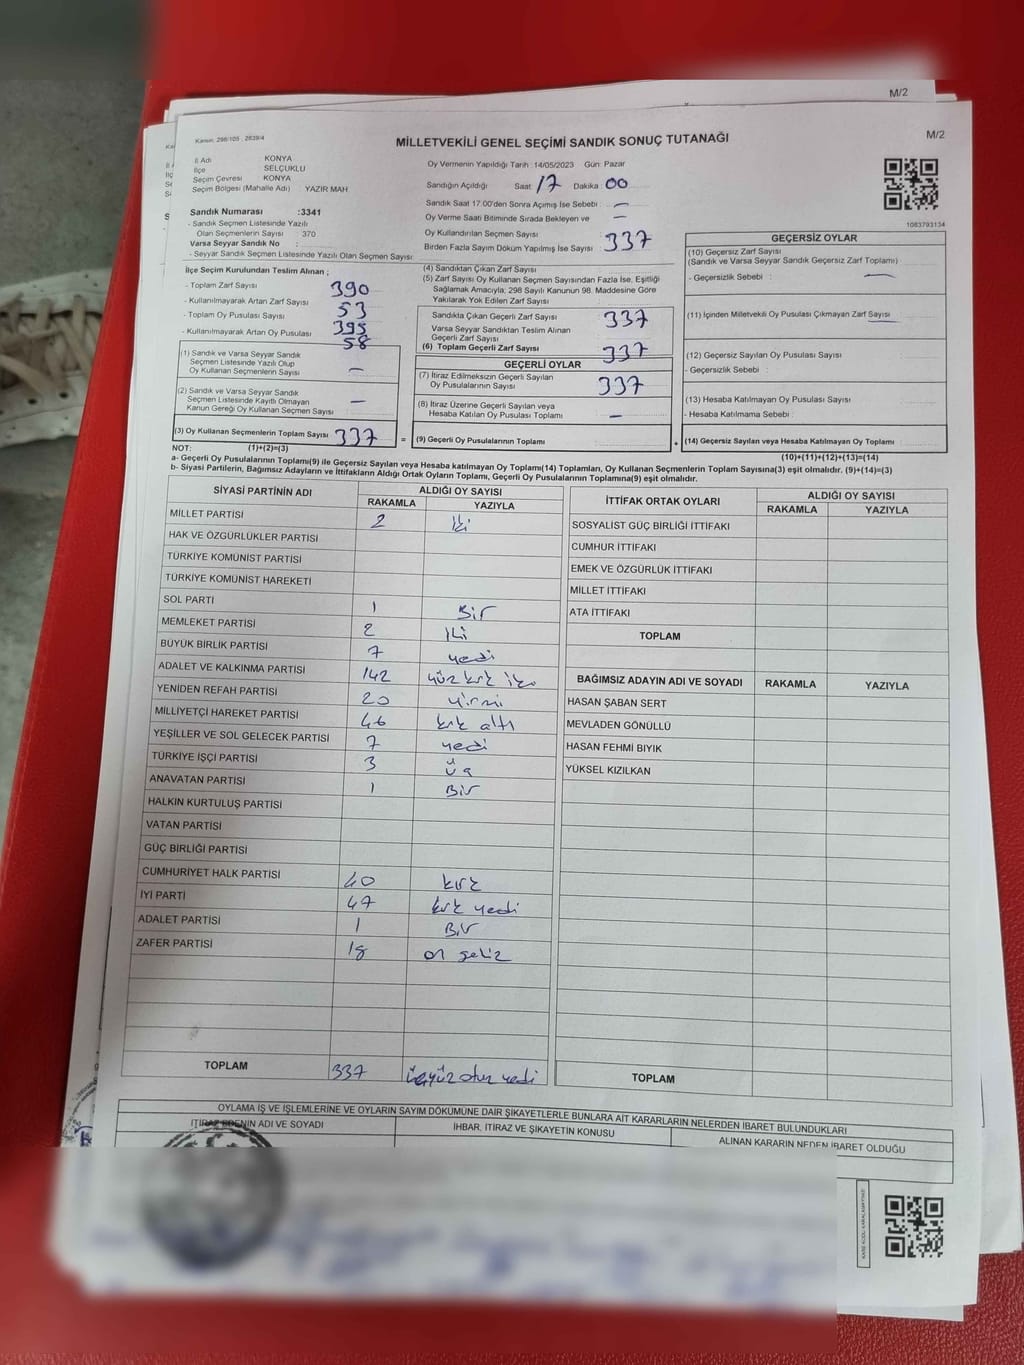 M/2
Kanun: 298/105 - 2839/4
MİLLETVEKİLİ GENEL SEÇİMİ SANDIK SONUÇ TUTANAĞI
M/2
İl Adı KONYA
İlçe SELÇUKLU
Seçim Çevresi KONYA
Seçim Bölgesi (Mahalle Adı) YAZIR MAH
Sandık Numarası :3341
- Sandık Seçmen Listesinde Yazılı
Olan Seçmenlerin Sayısı : 370
Varsa Seyyar Sandık No :
- Seyyar Sandık Seçmen Listesinde Yazılı Olan Seçmen Sayısı:
Oy Vermenin Yapıldığı Tarih :14/05/2023 Gün: Pazar
Sandığın Açıldığı Saat : 17 Dakika : 00
Sandık Saat 17.00'den Sonra Açımış İse Sebebi : —
Oy Verme Saati Bitiminde Sırada Bekleyen ve —
Oy Kullandırılan Seçmen Sayısı
Birden Fazla Sayım Döküm Yapılmış İse Sayısı : 337
1083793134
İlçe Seçim Kurulundan Teslim Alınan ;
- Toplam Zarf Sayısı 390
- Kullanılmayarak Artan Zarf Sayısı 53
- Toplam Oy Pusulası Sayısı 395
- Kullanılmayarak Artan Oy Pusulası 58
(1) Sandık ve Varsa Seyyar Sandık
Seçmen Listesinde Yazılı Olup
Oy Kullanan Seçmenlerin Sayısı —
(2) Sandık ve Varsa Seyyar Sandık
Seçmen Listesinde Kayıtlı Olmayan
Kanun Gereği Oy Kullanan Seçmen Sayısı —
(3) Oy Kullanan Seçmenlerin Toplam Sayısı 337
(1)+(2)=(3)
(4) Sandıktan Çıkan Zarf Sayısı
(5) Zarf Sayısı Oy Kullanan Seçmen Sayısından Fazla İse, Eşitliği
Sağlamak Amacıyla; 298 Sayılı Kanunun 98. Maddesine Göre
Yakılarak Yok Edilen Zarf Sayısı
Sandıkta Çıkan Geçerli Zarf Sayısı 337
Varsa Seyyar Sandıktan Teslim Alınan
Geçerli Zarf Sayısı
(6) Toplam Geçerli Zarf Sayısı 337
GEÇERLİ OYLAR
(7) İtiraz Edilmeksizin Geçerli Sayılan
Oy Pusulalarının Sayısı 337
(8) İtiraz Üzerine Geçerli Sayılan veya
Hesaba Katılan Oy Pusulası Toplamı —
= (9) Geçerli Oy Pusulalarının Toplamı
GEÇERSİZ OYLAR
(10) Geçersiz Zarf Sayısı
(Sandık ve Varsa Seyyar Sandık Geçersiz Zarf Toplamı)
- Geçersizlik Sebebi : —
(11) İçinden Milletvekili Oy Pusulası Çıkmayan Zarf Sayısı
(12) Geçersiz Sayılan Oy Pusulası Sayısı
- Geçersizlik Sebebi :
(13) Hesaba Katılmayan Oy Pusulası Sayısı
- Hesaba Katılmama Sebebi :
+ (14) Geçersiz Sayılan veya Hesaba Katılmayan Oy Toplamı
(10)+(11)+(12)+(13)=(14)
NOT:
a- Geçerli Oy Pusulalarının Toplamı(9) ile Geçersiz Sayılan veya Hesaba katılmayan Oy Toplamı(14) Toplamları, Oy Kullanan Seçmenlerin Toplam Sayısına(3) eşit olmalıdır. (9)+(14)=(3)
b- Siyasi Partilerin, Bağımsız Adayların ve İttifakların Aldığı Ortak Oyların Toplamı, Geçerli Oy Pusulalarının Toplamına(9) eşit olmalıdır.
SİYASİ PARTİNİN ADI ALDIĞI OY SAYISI
RAKAMLA YAZIYLA
MİLLET PARTİSİ 2 iki
HAK VE ÖZGÜRLÜKLER PARTİSİ
TÜRKİYE KOMÜNİST PARTİSİ
TÜRKİYE KOMÜNİST HAREKETİ
SOL PARTİ 1 Bir
MEMLEKET PARTİSİ 2 iki
BÜYÜK BİRLİK PARTİSİ 7 yedi
ADALET VE KALKINMA PARTİSİ 142 yüz kırk iki
YENİDEN REFAH PARTİSİ 20 yirmi
MİLLİYETÇİ HAREKET PARTİSİ 46 kırk altı
YEŞİLLER VE SOL GELECEK PARTİSİ 7 yedi
TÜRKİYE İŞÇİ PARTİSİ 3 üç
ANAVATAN PARTİSİ 1 Bir
HALKIN KURTULUŞ PARTİSİ
VATAN PARTİSİ
GÜÇ BİRLİĞİ PARTİSİ
CUMHURİYET HALK PARTİSİ 40 kırk
İYİ PARTİ 47 kırk yedi
ADALET PARTİSİ 1 Bir
ZAFER PARTİSİ 18 on sekiz
TOPLAM 337 üçyüz otuz yedi
İTTİFAK ORTAK OYLARI ALDIĞI OY SAYISI
RAKAMLA YAZIYLA
SOSYALİST GÜÇ BİRLİĞİ İTTİFAKI
CUMHUR İTTİFAKI
EMEK VE ÖZGÜRLÜK İTTİFAKI
MİLLET İTTİFAKI
ATA İTTİFAKI
TOPLAM
BAĞIMSIZ ADAYIN ADI VE SOYADI RAKAMLA YAZIYLA
HASAN ŞABAN SERT
MEVLADEN GÖNÜLLÜ
HASAN FEHMİ BIYIK
YÜKSEL KIZILKAN
TOPLAM
OYLAMA İŞ VE İŞLEMLERİNE VE OYLARIN SAYIM DÖKÜMÜNE DAİR ŞİKAYETLERLE BUNLARA AİT KARARLARIN NELERDEN İBARET BULUNDUKLARI
İTİRAZ EDENİN ADI VE SOYADI İHBAR, İTİRAZ VE ŞİKAYETİN KONUSU ALINAN KARARIN NEDEN İBARET OLDUĞU